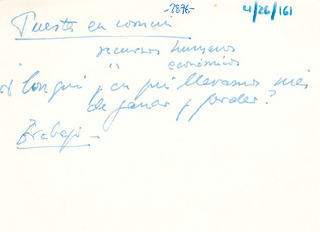 -2896-
4/26/161
Puesta en común
recursos humanos
" económicos
con qué y en qué llevamos más
de ganar y perder?
Trabajo -